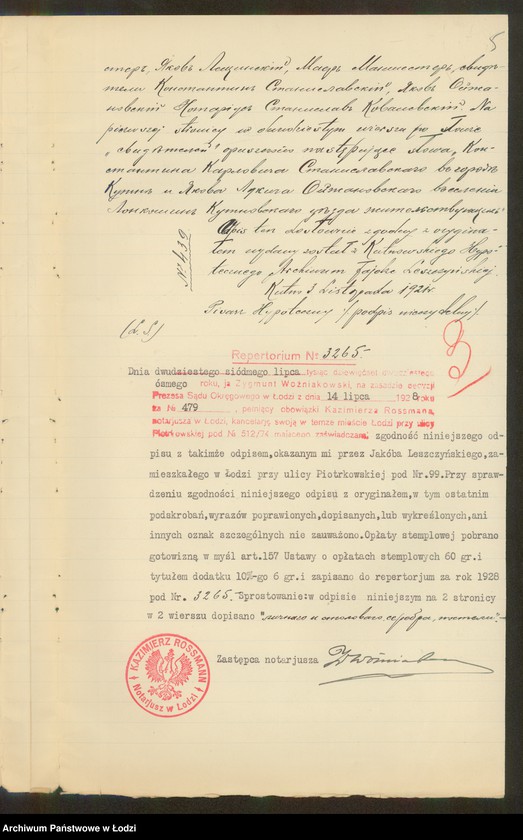 5
стеръ, Яковъ Лещинскій, Маеръ Манистеръ, свидѣ-
тели Константинъ Станиславскій, Яковъ Ойтма-
новскій Нотаріусъ Станиславъ Ковалевскій. Na
pierwszej stronicy w dwudziestym wierszu po słowie
„свидѣтелей" opuszczono następujące słowa „Кон-
стантина Карловича Станиславскаго въ городѣ
Кутнѣ и Якова Ойтмановскаго въ селеніи
Кутновскаго уѣзда жительствующихъ
Opis ten dosłownie zgodny z orygina-
łem wydany został z Kutnowskiego Hypo-
tecznego Archiwum Jakóbie Leszczyńskiej.
Kutno 3 Listopada 1921r.
Pisarz Hypoteczny / podpis nieczytelny /.
№ 439
(L. S.)
3
Repertorium № 3265.-
Dnia dwudziestego siódmego lipca tysiąc dziewięćset dwudziestego
ósmego roku, ja Zygmunt Woźniakowski, na zasadzie decyzji
Prezesa Sądu Okręgowego w Łodzi z dnia 14 lipca 1928 roku
za № 479 , pełniący obowiązki Kazimierza Rossmana,
notarjusza w Łodzi, kancelarję swoją w temże mieście Łodzi przy ulicy
Piotrkowskiej pod № 512/74 mającego zaświadczam, zgodność niniejszego od-
pisu z takimże odpisem,okazanym mi przez Jakóba Leszczyńskiego,za-
mieszkałego w Łodzi przy ulicy Piotrkowskiej pod Nr.99.Przy spraw-
dzeniu zgodności niniejszego odpisu z oryginałem,w tym ostatnim
podskrobań,wyrazów poprawionych,dopisanych,lub wykreślonych,ani
innych oznak szczególnych nie zauważono.Opłaty stemplowej pobrano
gotowizną w myśl art.157 Ustawy o opłatach stemplowych 60 gr.i
tytułem dodatku 10%-go 6 gr.i zapisano do repertorjum za rok 1928
pod Nr. 3265.- Sprostowanie:w odpisie niniejszym na 2 stronicy
w 2 wierszu dopisano "личнаго и столоваго серебра, постели".-
Zastępca notarjusza
KAZIMIERZ ROSSMANN
Notarjusz w Łodzi
Archiwum Państwowe w Łodzi